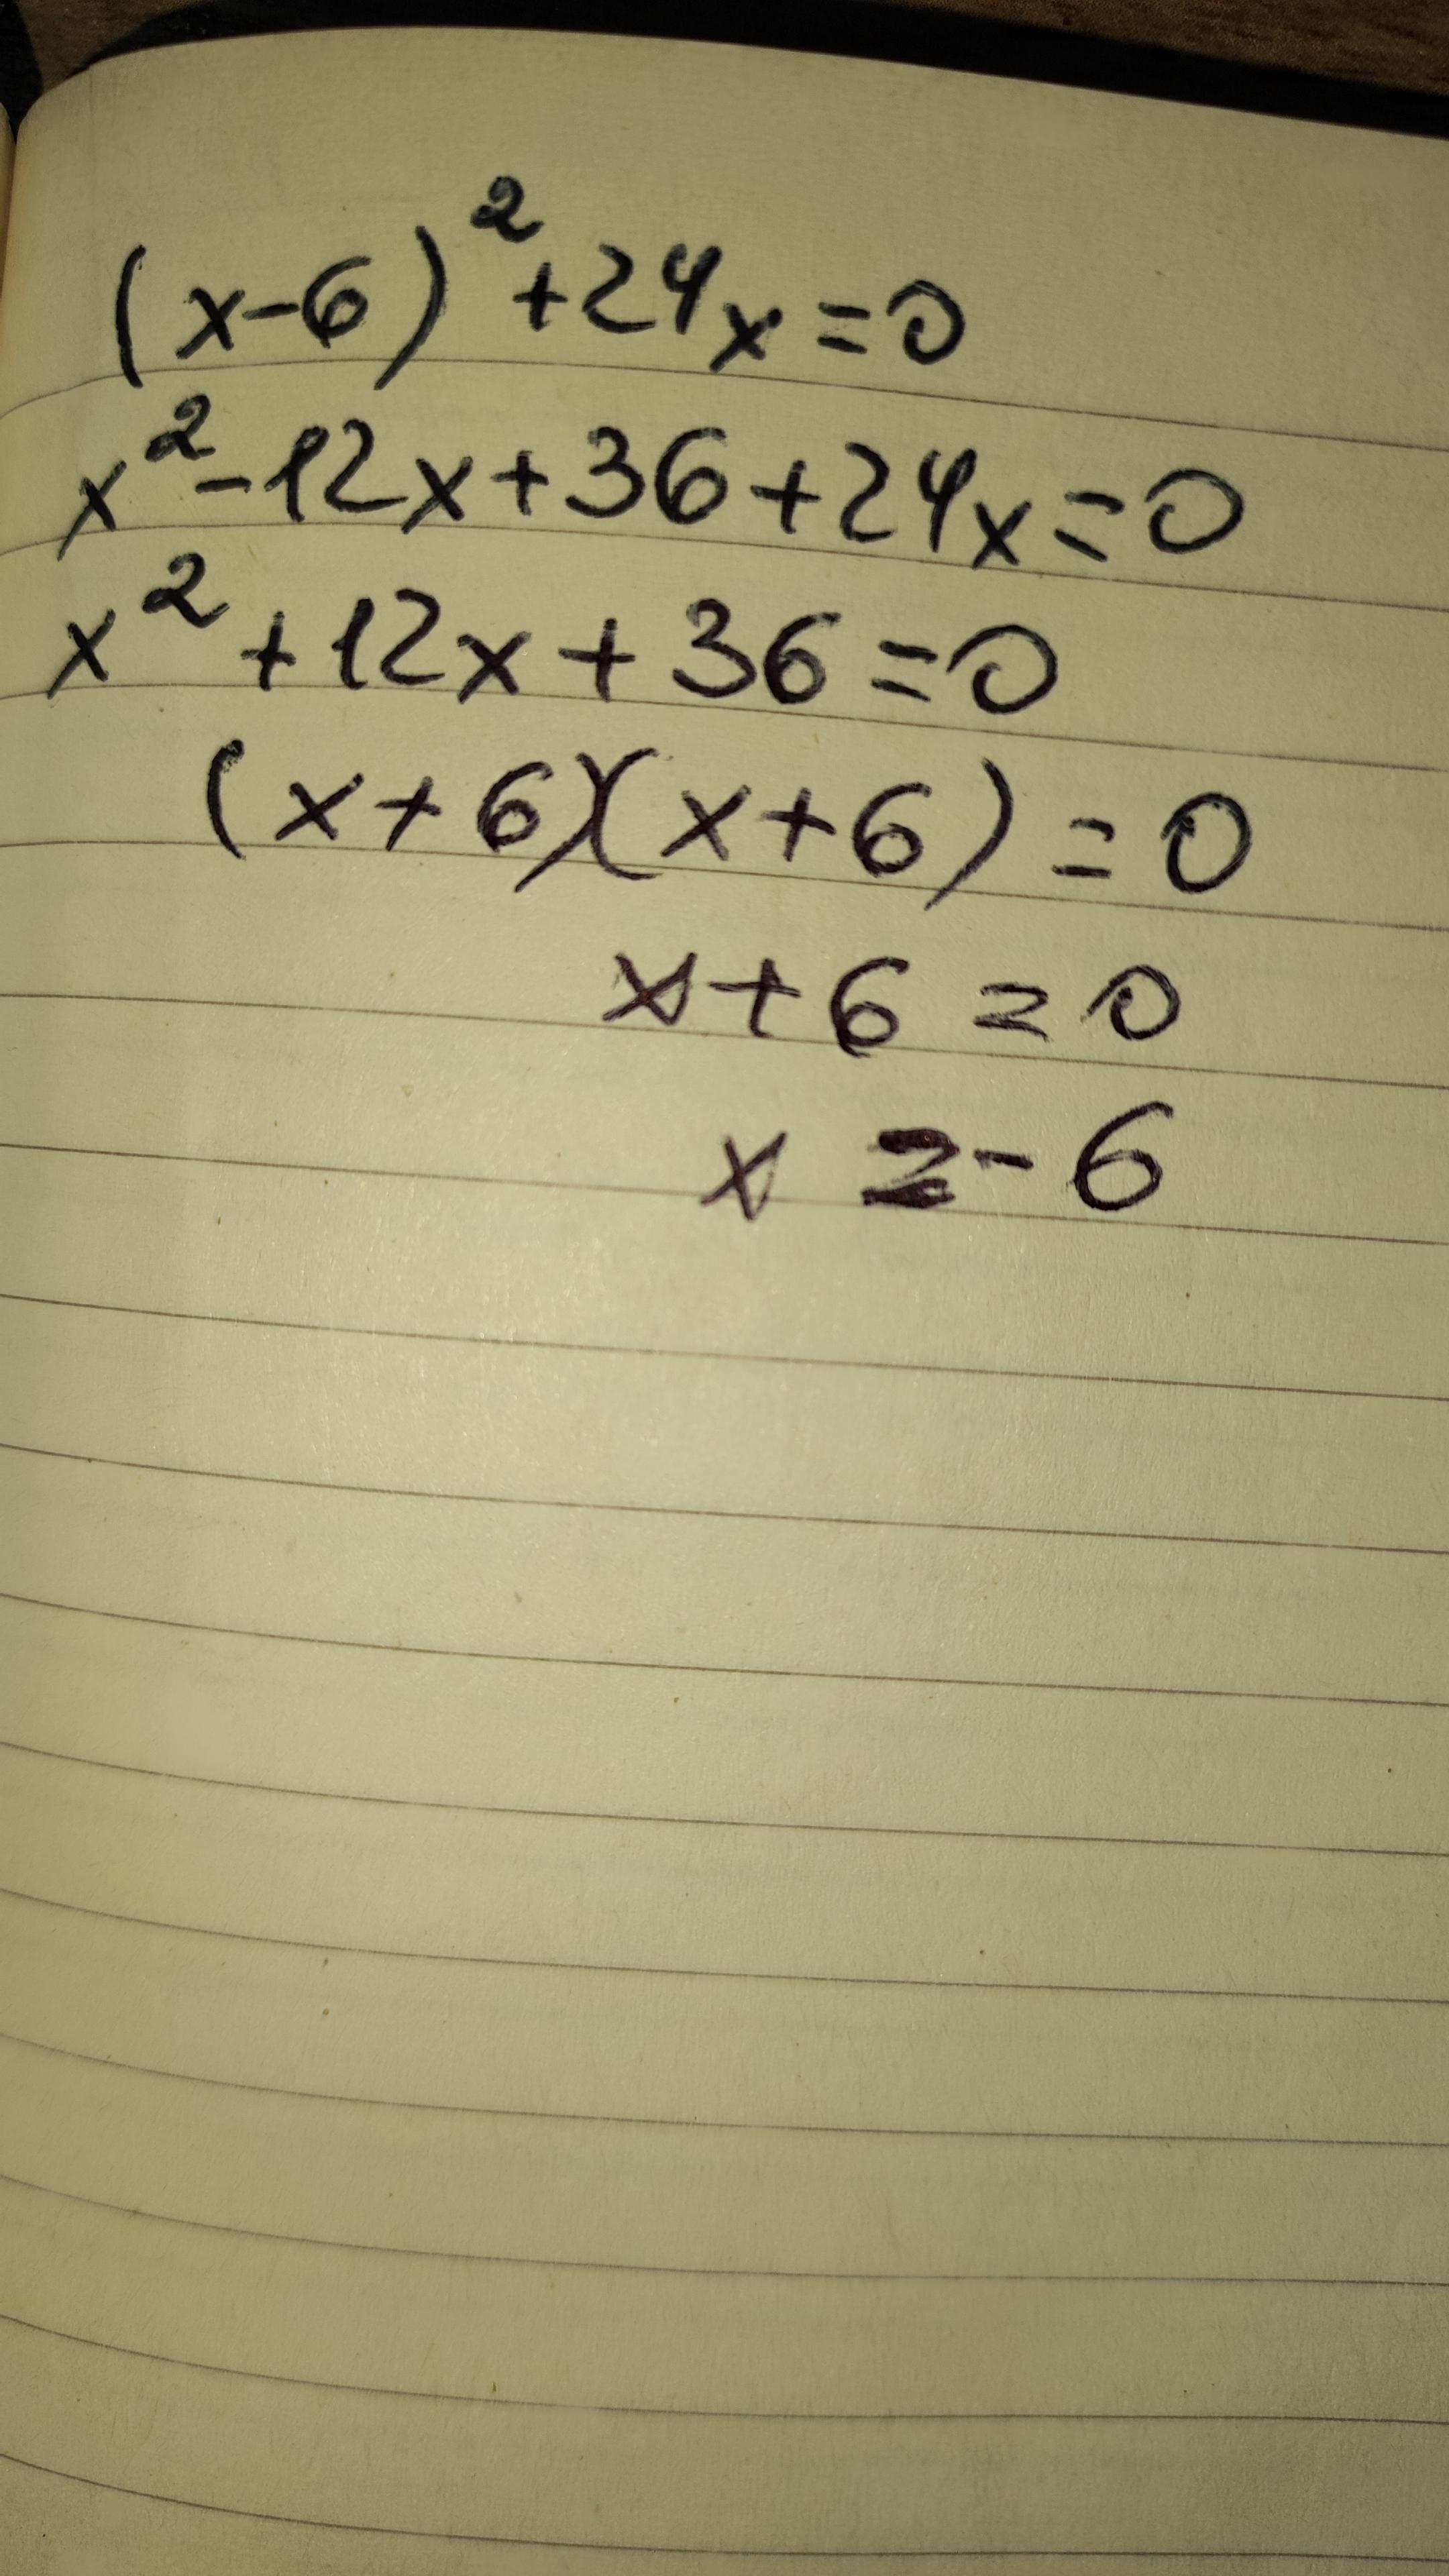 (x-6)²+24x=0
x²-12x+36+24x=0
x²+12x+36=0
(x+6)(x+6)=0
x+6=0
x=-6